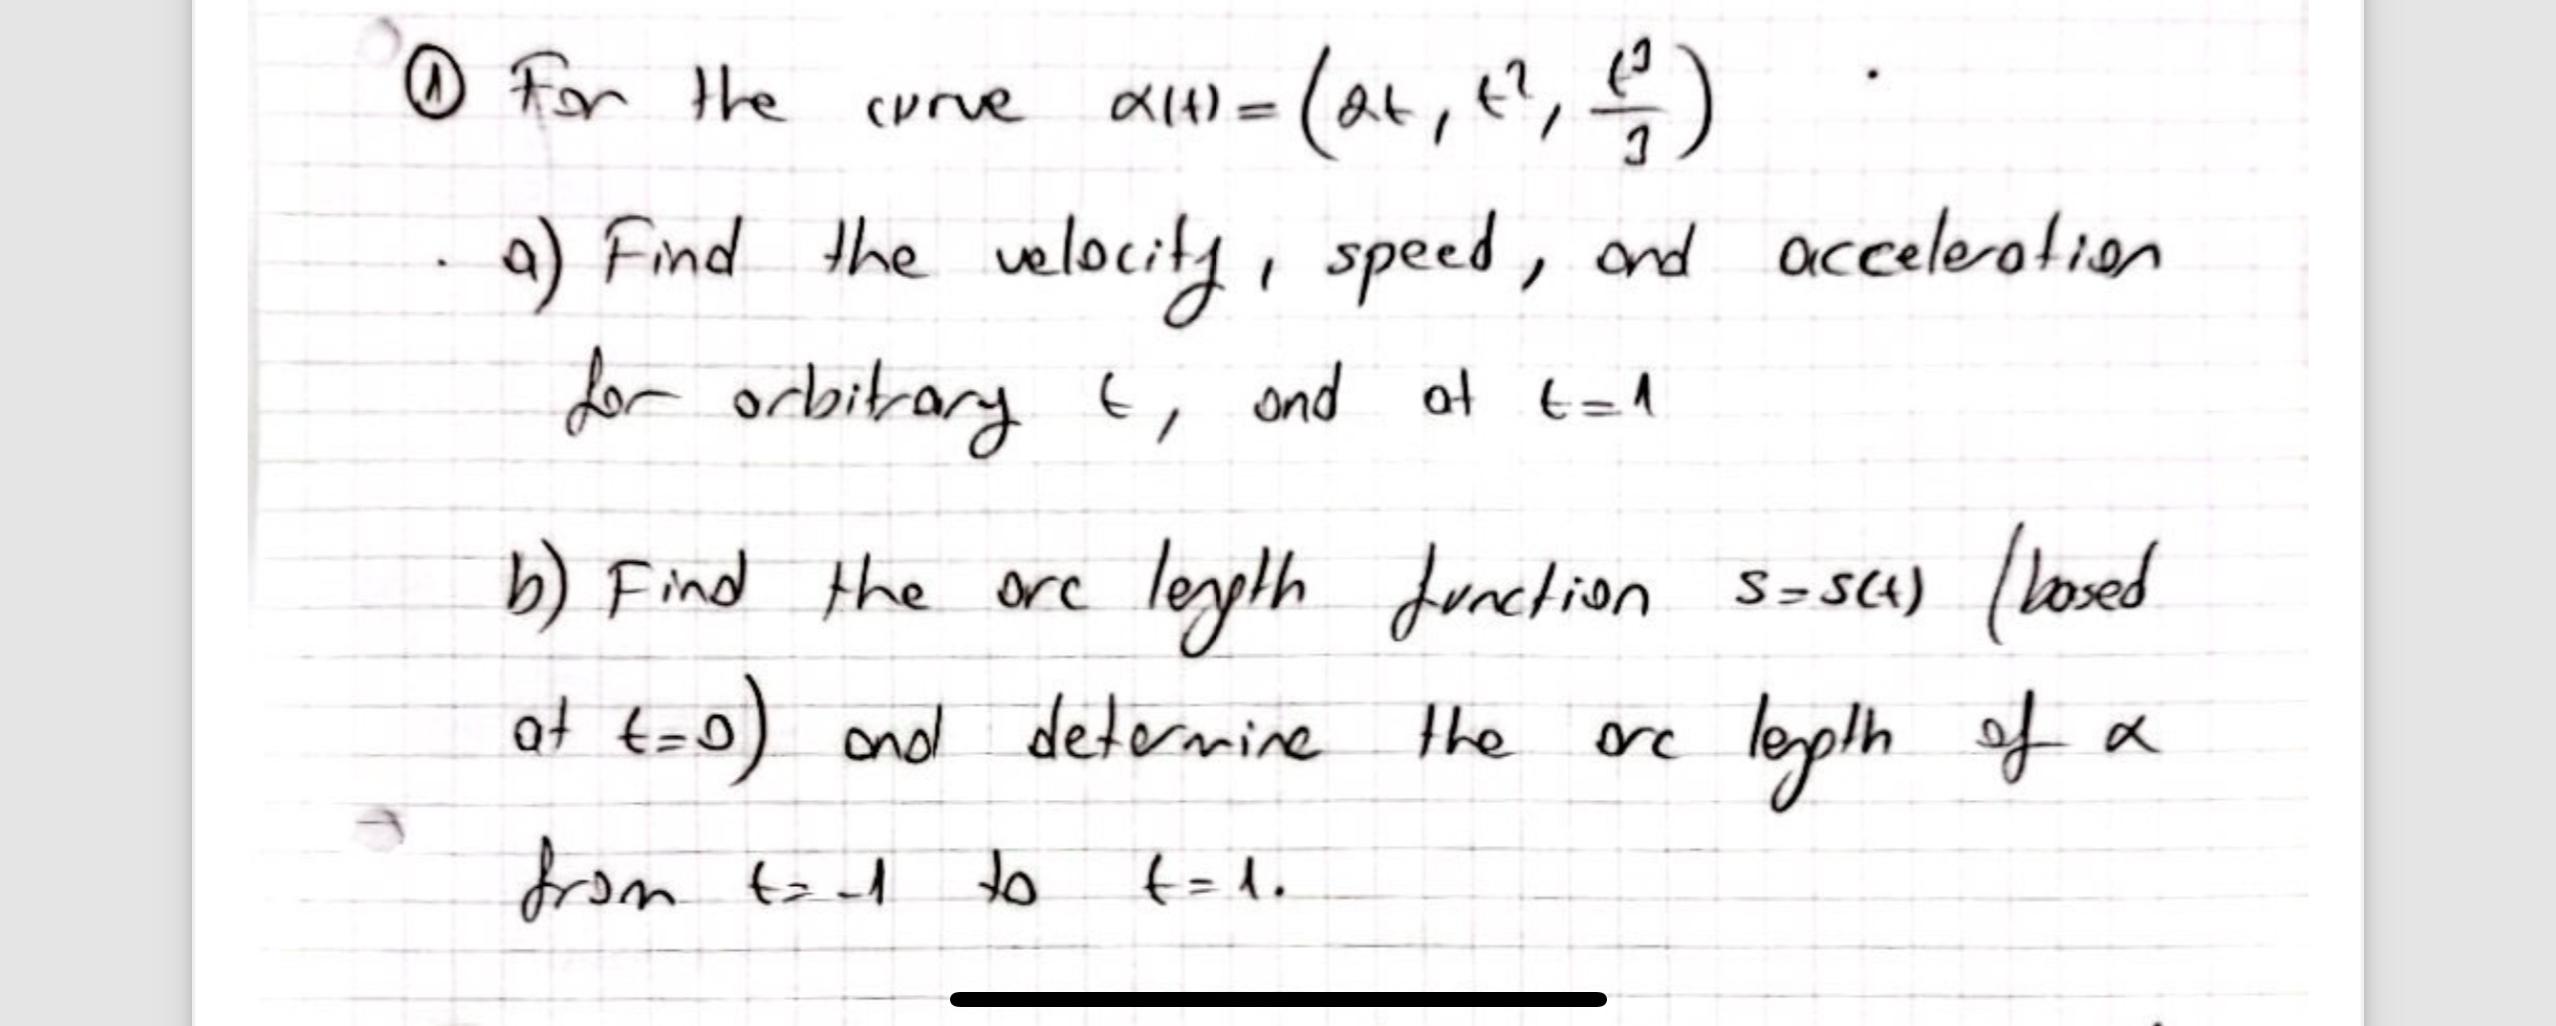 ① For the curve α(t) = (2t, t², t³/3)
a) Find the velocity, speed, and acceleration
for arbitrary t, and at t=1
b) Find the arc length function s=s(t) (based
at t=0) and determine the arc length of α
from t=-1 to t=1.